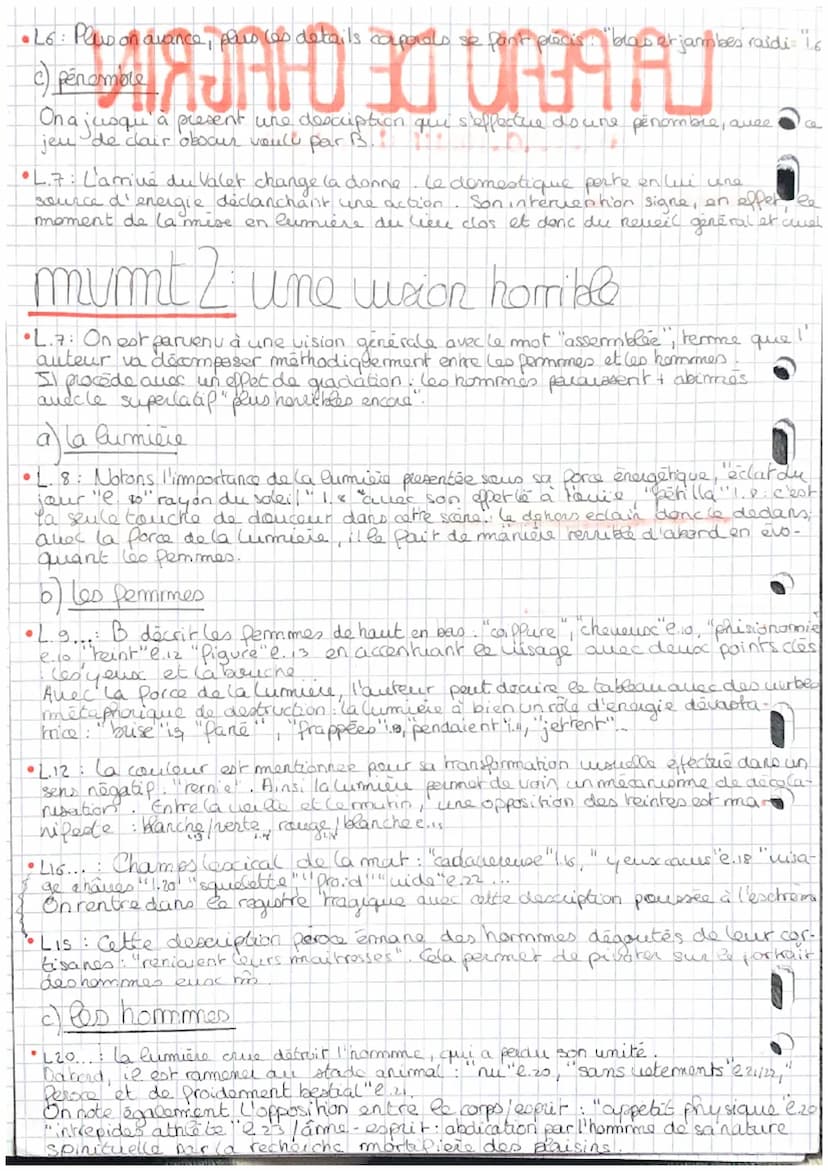 • L6 : Plus on avance, plus les détails corporels se font précis : "bras et jambes raidis" l.6
LA PEAU DE CHAGRIN
c) pénombre
On a jusqu'à présent une description qui s'effectue ds une pénombre, avec ce
jeu de clair obscur voulu par B.
• L.7 : L'arrivé du Valet change la donne. Le domestique porte en lui une
source d'énergie déclanchant une action. Son intervention signe, en effet, le
moment de la mise en lumière du lieu clos et donc du reveil général et
mvmt 2 : une vision horrible
• L.7 : On est parvenu à une vision générale avec le mot "assemblée", terme que l'
auteur va décomposer méthodiquement entre les femmes et les hommes.
Il procède avec un effet de gradation : les hommes paraissent + abimés
avec le superlatif "plus horribles encore".
a) la lumière
• L. 8 : Notons l'importance de la lumière présentée sous sa force énergétique, "éclat du
jour" "rayon du soleil" l.8 avec son effet lié à l'ouïe, "pétilla" l.8 : c'est
la seule touche de douceur dans cette scène. Le dehors eclair donc le dedans,
avec la force de la lumière, il le fait de manière d'abord en évo-
quant les femmes.
b) les femmes
• L.9... : B décrit les femmes de haut en bas. "coiffure", "cheveux" l.10, "phisionomie"
l.10 "teint" l.12 "figure" l.13 en accentuant le visage avec deux points clés
: les yeux et la bouche
Avec la force de la lumière, l'auteur peut décrire le tableau avec des verbes
métaphorique de destruction : la lumière à bien un rôle d'énergie dévasta-
trice : "brise" l.9 "fané", "frappées" l.9, "pendaient" l.11, "jettent"...
• L.12 : La couleur est mentionnée pour sa transformation visuelle effectué dans un
sens négatif. "ternie". Ainsi la lumière permet de voir un mécanisme de décola-
risation. Entre la veille et le matin, une opposition des teintes est ma-
nifeste : blanche/verte, rouge/blanche l.15
• L16... : Champs lexical de la mort : "cadavéreuse" l.16, "yeux caves" l.18 "visa-
ge hâves" l.20 "squelette" "froid" "vide" l.22 ...
On rentre dans le registre tragique avec cette description poussée à l'eschrem
• L15 : Cette description féroce émane des hommes dégoutés de leur cor-
tisanes : "reniaient leurs maitresses". Cela permet de pivoter sur le portrait
des hommes eux m̂
c) les hommes
• L20... : la lumière crue détruit l'homme, qui a perdu son unité.
Dabord, il est ramener au stade animal : "nu" l.20, "sans vetements" l.21/22, "
féroce et de froidement bestial" l.21.
On note également l'opposition entre le corps/esprit : "appetits physique" l.20
"intrepides athlète" l.23 /âme - esprit : abdication par l'homme de sa nature
spirituelle par la recherche mortifière des plaisins.